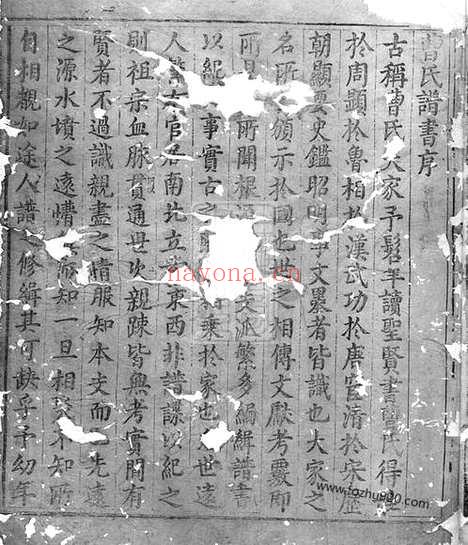 曹氏譜書序
古稱曹氏大家予髫年讀聖賢書曹氏得姓
於周顯於魯相於漢武功於唐官清於宋歷
朝顯 史鑑昭明事文累者皆識也大家之
名所 頒示於國也世之相傳文獻考覈即
所見 所聞根 支派繁多編緝譜書
以紀 事實古之 乘於家也 世遠
人 官居南北立 東西非譜諜以紀之
則祖宗血脉貫通世次親踈皆無考實間有
賢者不過識親盡之情服知本支而已先遠
之源水墳之遠情 而知一旦相 不知所
自相親如途人譜之修緝其可缺乎予幼年
nayona.cn
www.fozhy900.com